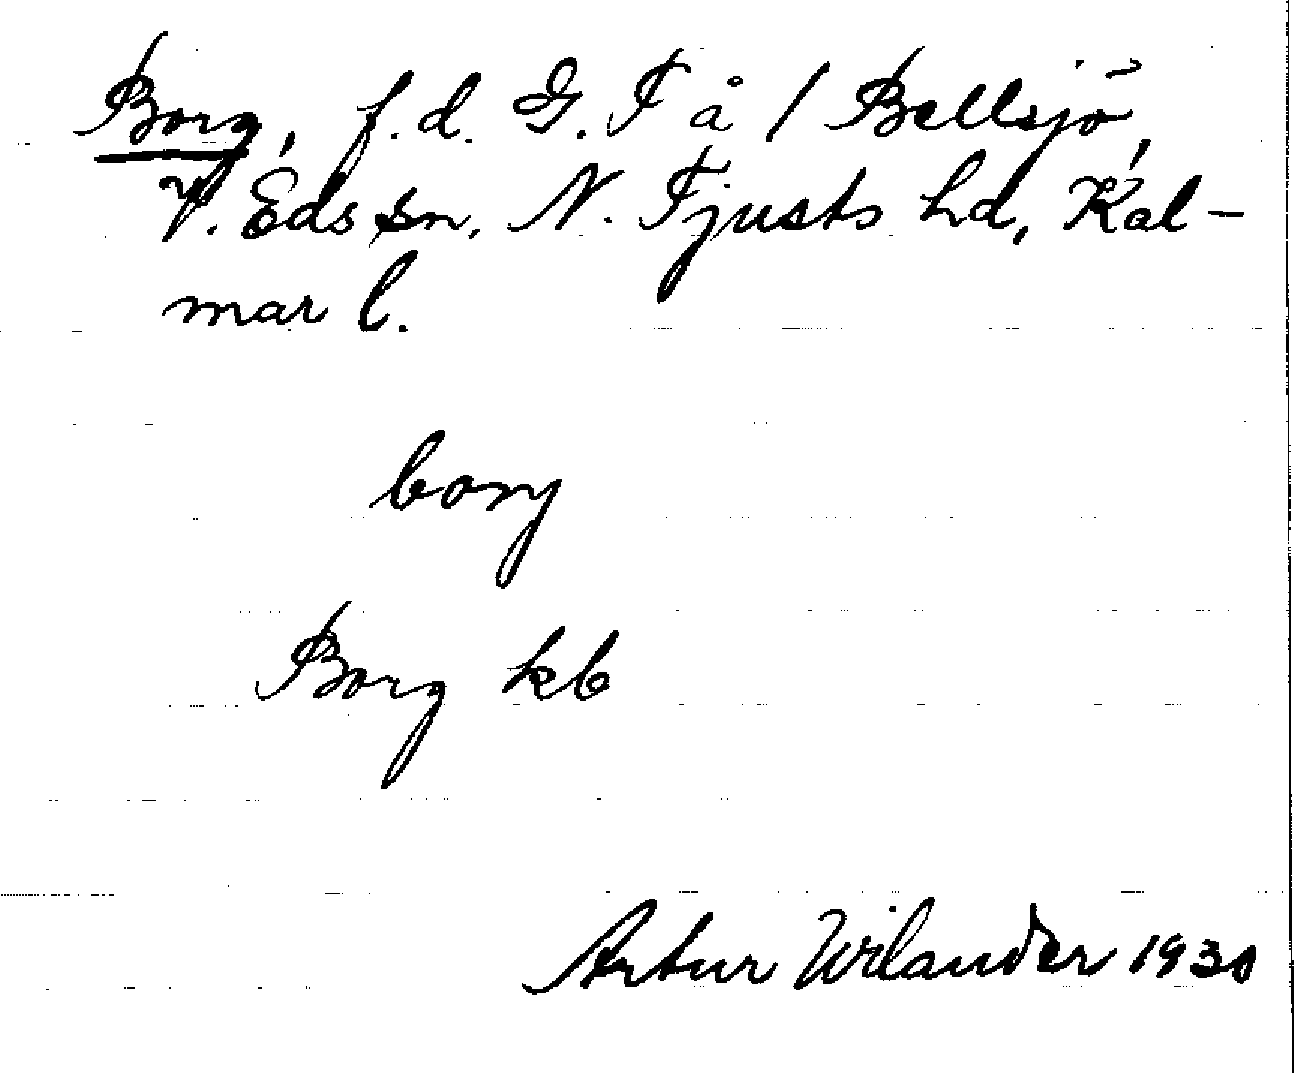 Borg, f.d. G. T å / Bellsjö,
V. Eds sn, N. Tjusts hd, Kal-
mar l.
borg
Borg kb
Artur Wilander 1930